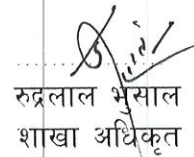 रुद्रलाल भुसाल
शाखा अधिकृत